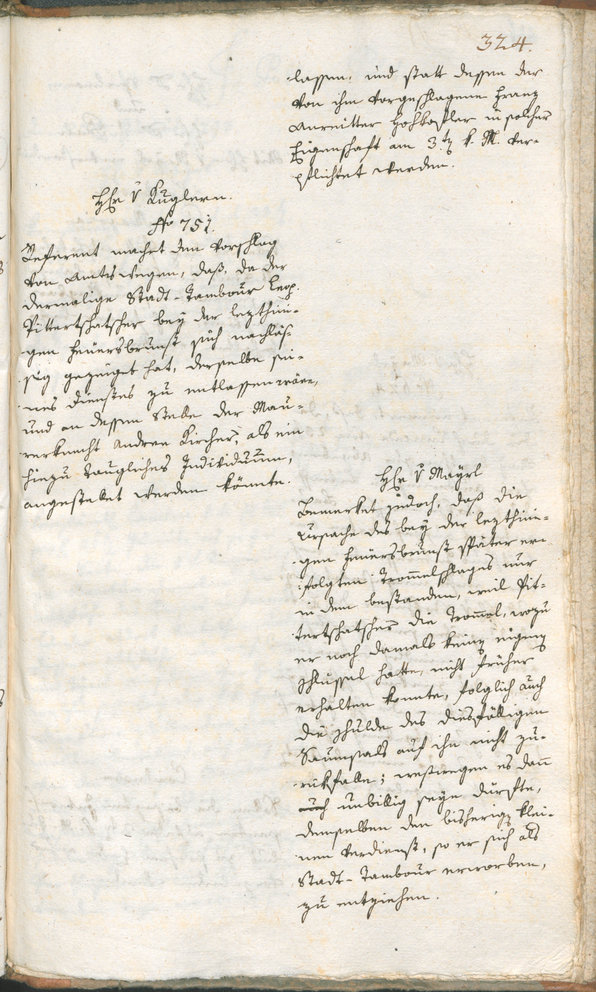 324.
lassen, und statt dessen der
von ihm vorgeschlagene Franz
Anreitter Holzkastler in solcher
Eigenschaft am 3.ten k. M. ver-
pflichtet werden.
Hr. v Kuglern.
No 751.
Referent machet den Vorschlag
von Amts wegen, daß, da der
dermalige Stadt-Tambour Leop.
Pittertschatscher bey der lezthin-
gen Feuersbrunst sich nachläs-
sig gezeiget hat, derselbe sei-
nes Dienstes zu entlassen wäre,
und an dessen Stelle der Mau-
rerknecht Andreas Kircher, als ein
hiezu taugliches Individuum,
angestellet werden könnte.
Hr. v Mayrl
Bemerket jedoch, daß die
Ursache des bey der lezthin-
gen Feuersbrunst später er-
folgten Tromelschlages nur
in dem bestanden, weil Pit-
tertschatscher die Tromel, wozu
er noch damals keinen eigenen
Schlüssel hatte, nicht früher
erhalten konnte, folglich auch
die Schulde des diesfälligen
Saumsals auf ihn nicht zu-
rükfalle; weswegen es dann
auch unbillig seyn dürfte,
demselben den bisherigen klei-
nen Verdienst, so er sich als
Stadt-Tambour erworben,
zu entziehen.